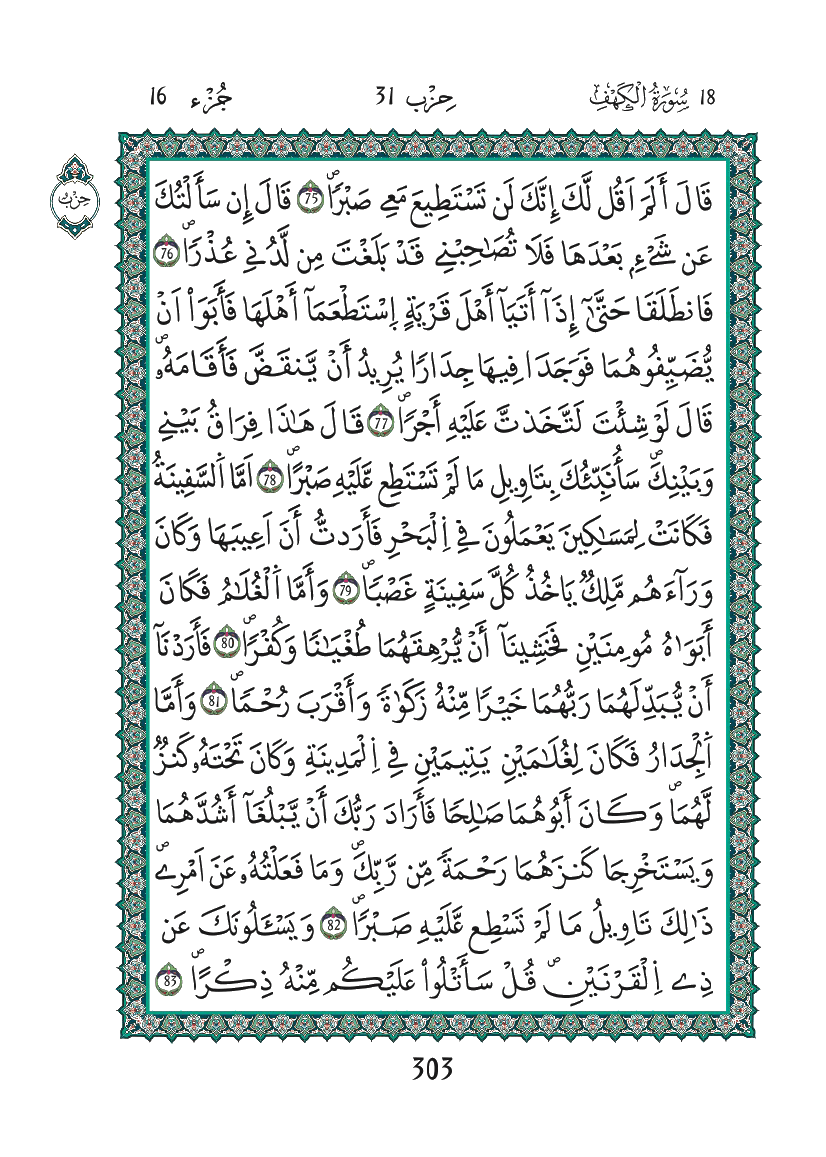 18 سُورَةُ الْكَهْفِ حِزْب 31 جُزْء 16
حِزْب
قَالَ أَلَمَ اَقُل لَّكَ إِنَّكَ لَن تَسْتَطِيعَ مَعِے صَبْرٗاۖ 75 قَالَ إِن سَأَلْتُكَ
عَن شَےْءِۢ بَعْدَهَا فَلَا تُصَٰحِبْنِے قَدْ بَلَغْتَ مِن لَّدُنِے عُذْرٗاۖ 76
فَانطَلَقَا حَتَّىٰٓ إِذَآ أَتَيَآ أَهْلَ قَرْيَةٍ اِ۪سْتَطْعَمَآ أَهْلَهَا فَأَبَوَاْ اَنْ
يُّضَيِّفُوهُمَا فَوَجَدَا فِيهَا جِدَارٗا يُرِيدُ أَنْ يَّنقَضَّ فَأَقَامَهُۥۖ
قَالَ لَوْ شِئْتَ لَتَّخَذتَّ عَلَيْهِ أَجْرٗاۖ 77 قَالَ هَٰذَا فِرَاقُ بَيْنِے
وَبَيْنِكَۖ سَأُنَبِّئُكَ بِتَاوِيلِ مَا لَمْ تَسْتَطِع عَّلَيْهِ صَبْرٗاۖ 78 اَمَّا اَ۬لسَّفِينَةُ
فَكَانَتْ لِمَسَٰكِينَ يَعْمَلُونَ فِے اِ۬لْبَحْرِ فَأَرَدتُّ أَنَ اَعِيبَهَا وَكَانَ
وَرَآءَهُم مَّلِكٞ يَاخُذُ كُلَّ سَفِينَةٍ غَصْبٗاۖ 79 وَأَمَّا اَ۬لْغُلَٰمُ فَكَانَ
أَبَوَٰهُ مُومِنَيْنِ فَخَشِينَآ أَنْ يُّرْهِقَهُمَا طُغْيَٰنٗا وَكُفْرٗاۖ 80 فَأَرَدْنَآ
أَنْ يُّبَدِّلَهُمَا رَبُّهُمَا خَيْرٗا مِّنْهُ زَكَوٰةٗ وَأَقْرَبَ رُحْمٗاۖ 81 وَأَمَّا
اَ۬لْجِدَارُ فَكَانَ لِغُلَٰمَيْنِ يَتِيمَيْنِ فِے اِ۬لْمَدِينَةِ وَكَانَ تَحْتَهُۥ كَنزٞ
لَّهُمَاۖ وَكَانَ أَبُوهُمَا صَٰلِحٗا فَأَرَادَ رَبُّكَ أَنْ يَّبْلُغَآ أَشُدَّهُمَا
وَيَسْتَخْرِجَا كَنزَهُمَا رَحْمَةٗ مِّن رَّبِّكَۖ وَمَا فَعَلْتُهُۥ عَنَ اَمْرِےۖ
ذَٰلِكَ تَاوِيلُ مَا لَمْ تَسْطِع عَّلَيْهِ صَبْرٗاۖ 82 وَيَسْـَٔلُونَكَ عَن
ذِے اِ۬لْقَرْنَيْنِۖ قُلْ سَأَتْلُواْ عَلَيْكُم مِّنْهُ ذِكْرٗاۖ 83
303